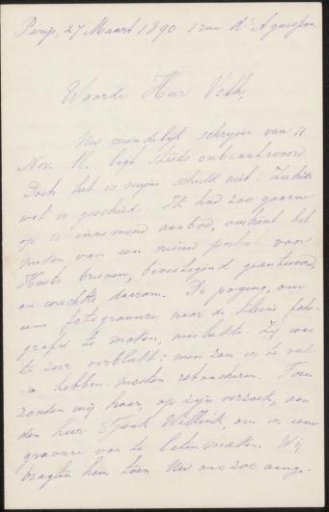 Parijs, 27 Maart 1890 1 rue d'Aguesseau.
Waarde Heer Veth,
Uw vriendelijk schrijven van 11
Nov. ll. ligt steeds onbeantwoord.
Doch het is mijne schuld niet. Ziehier
wat is geschied. Ik had zoo gaarne
op uw aanbod, omtrent het
van een nieuw portret van
Huets brieven, bevestigend geantwoord,
en wachtte daarom. De poging, om
eene fotogravure naar de kleine foto-
grafie te maken, mislukte. Zij was
te zeer verbleekt: men zou er te veel
in hebben moeten retoucheren. Toen
zonden wij haar, op zijn verzoek, aan
den heer Tjeenk Willink, om er eene
gravure van te laten maken. Wij
hem toen Uw ons zoo aange-